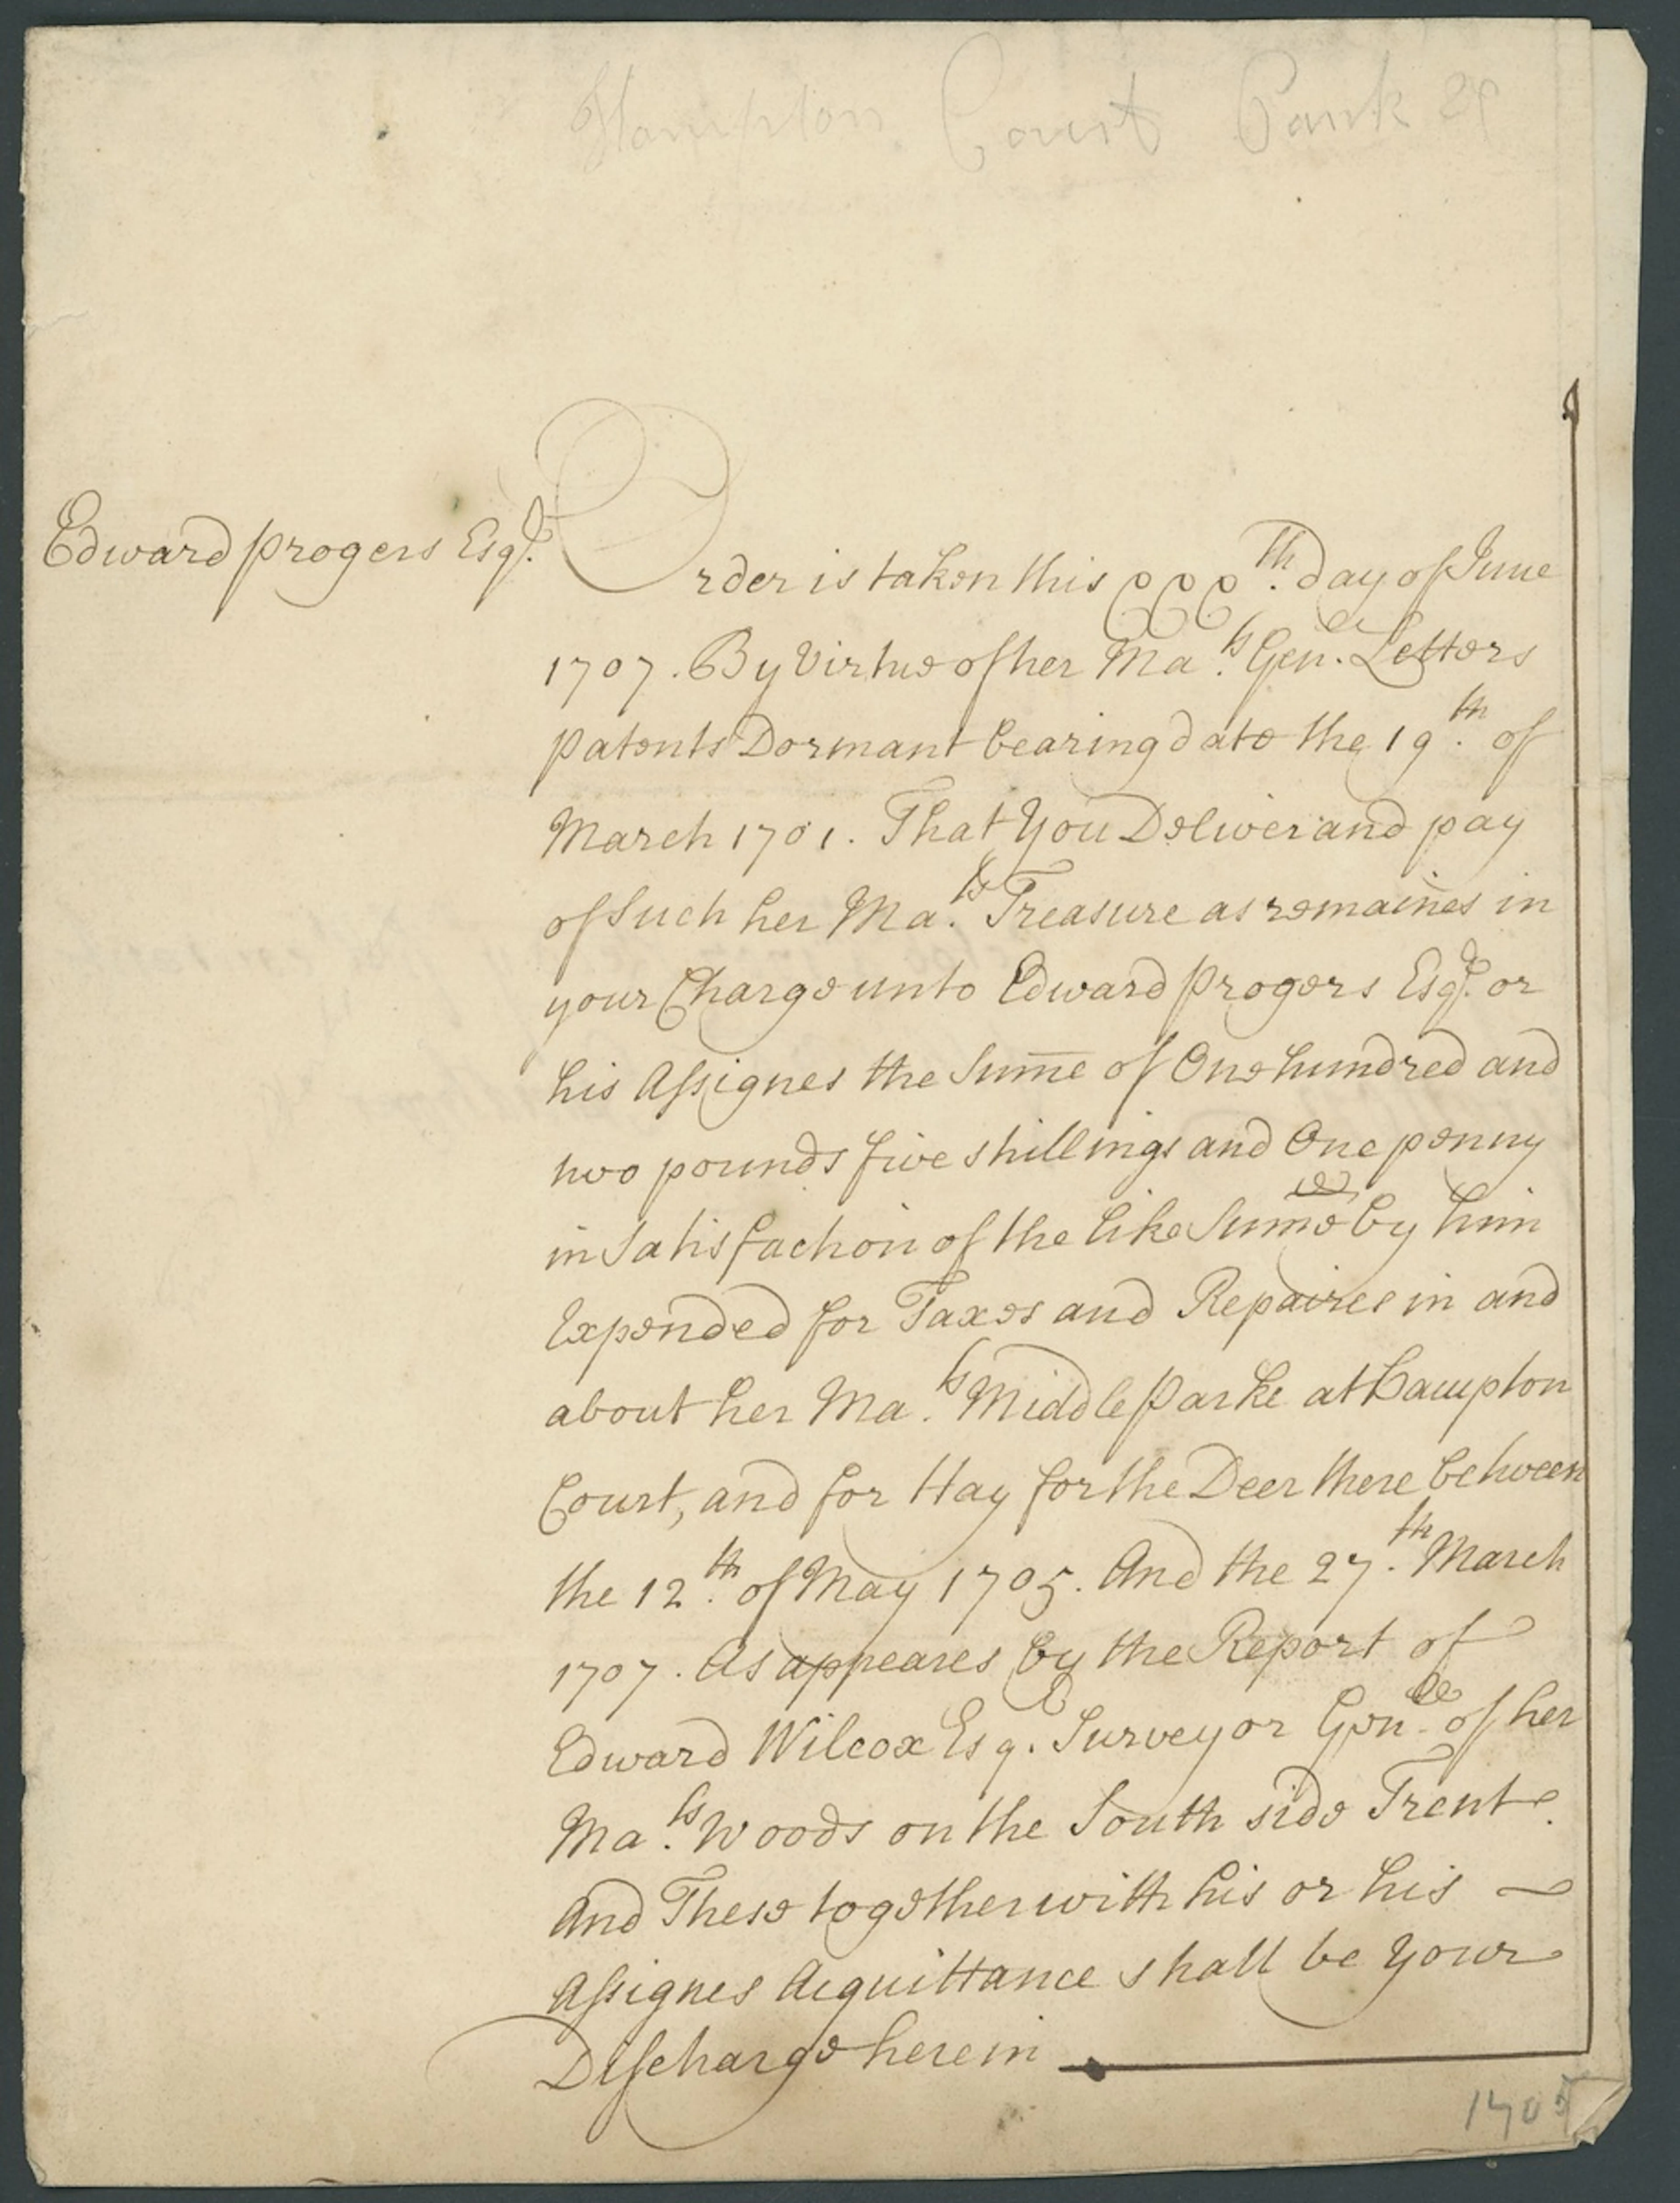 Hampton Court Park
Edward Progers Esqr.
Order is taken this xxxth. day of June
1707. By Virtue of her Mats. Genll. Letters
patents Dormant bearing date the 19th. of
March 1701. That You Deliver and pay
of Such her Mats. Treasure as remaines in
your Charge unto Edward Progers Esqr. or
his Assignes the Sum̅e of One hundred and
two pounds five shillings and One penny
in Satisfaction of the like Sum̅e by him
Expended for Taxes and Repaires in and
about her Mats. Middle Parke at Hampton
Court, and for Hay for the Deer there between
the 12th. of May 1705. And the 27th. March
1707. As appeares by the Report of
Edward Wilcox Esq. Surveyor Genll. of her
Mats. Woods on the South side Trent.
And These together with his or his
Assignes Acquittance shall be Your
Discharge herein
1705